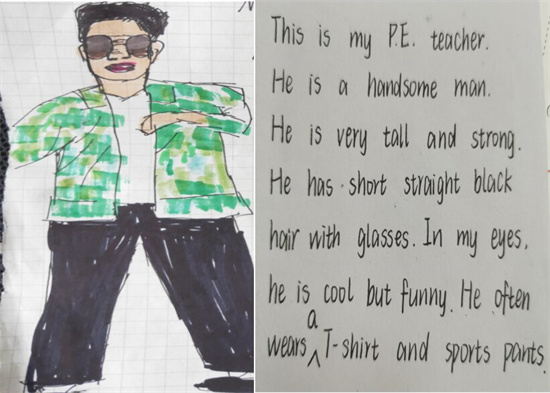 This is my P.E. teacher.
He is a handsome man.
He is very tall and strong.
He has short straight black
hair with glasses. In my eyes,
he is cool but funny. He often
wears a T-shirt and sports pants.